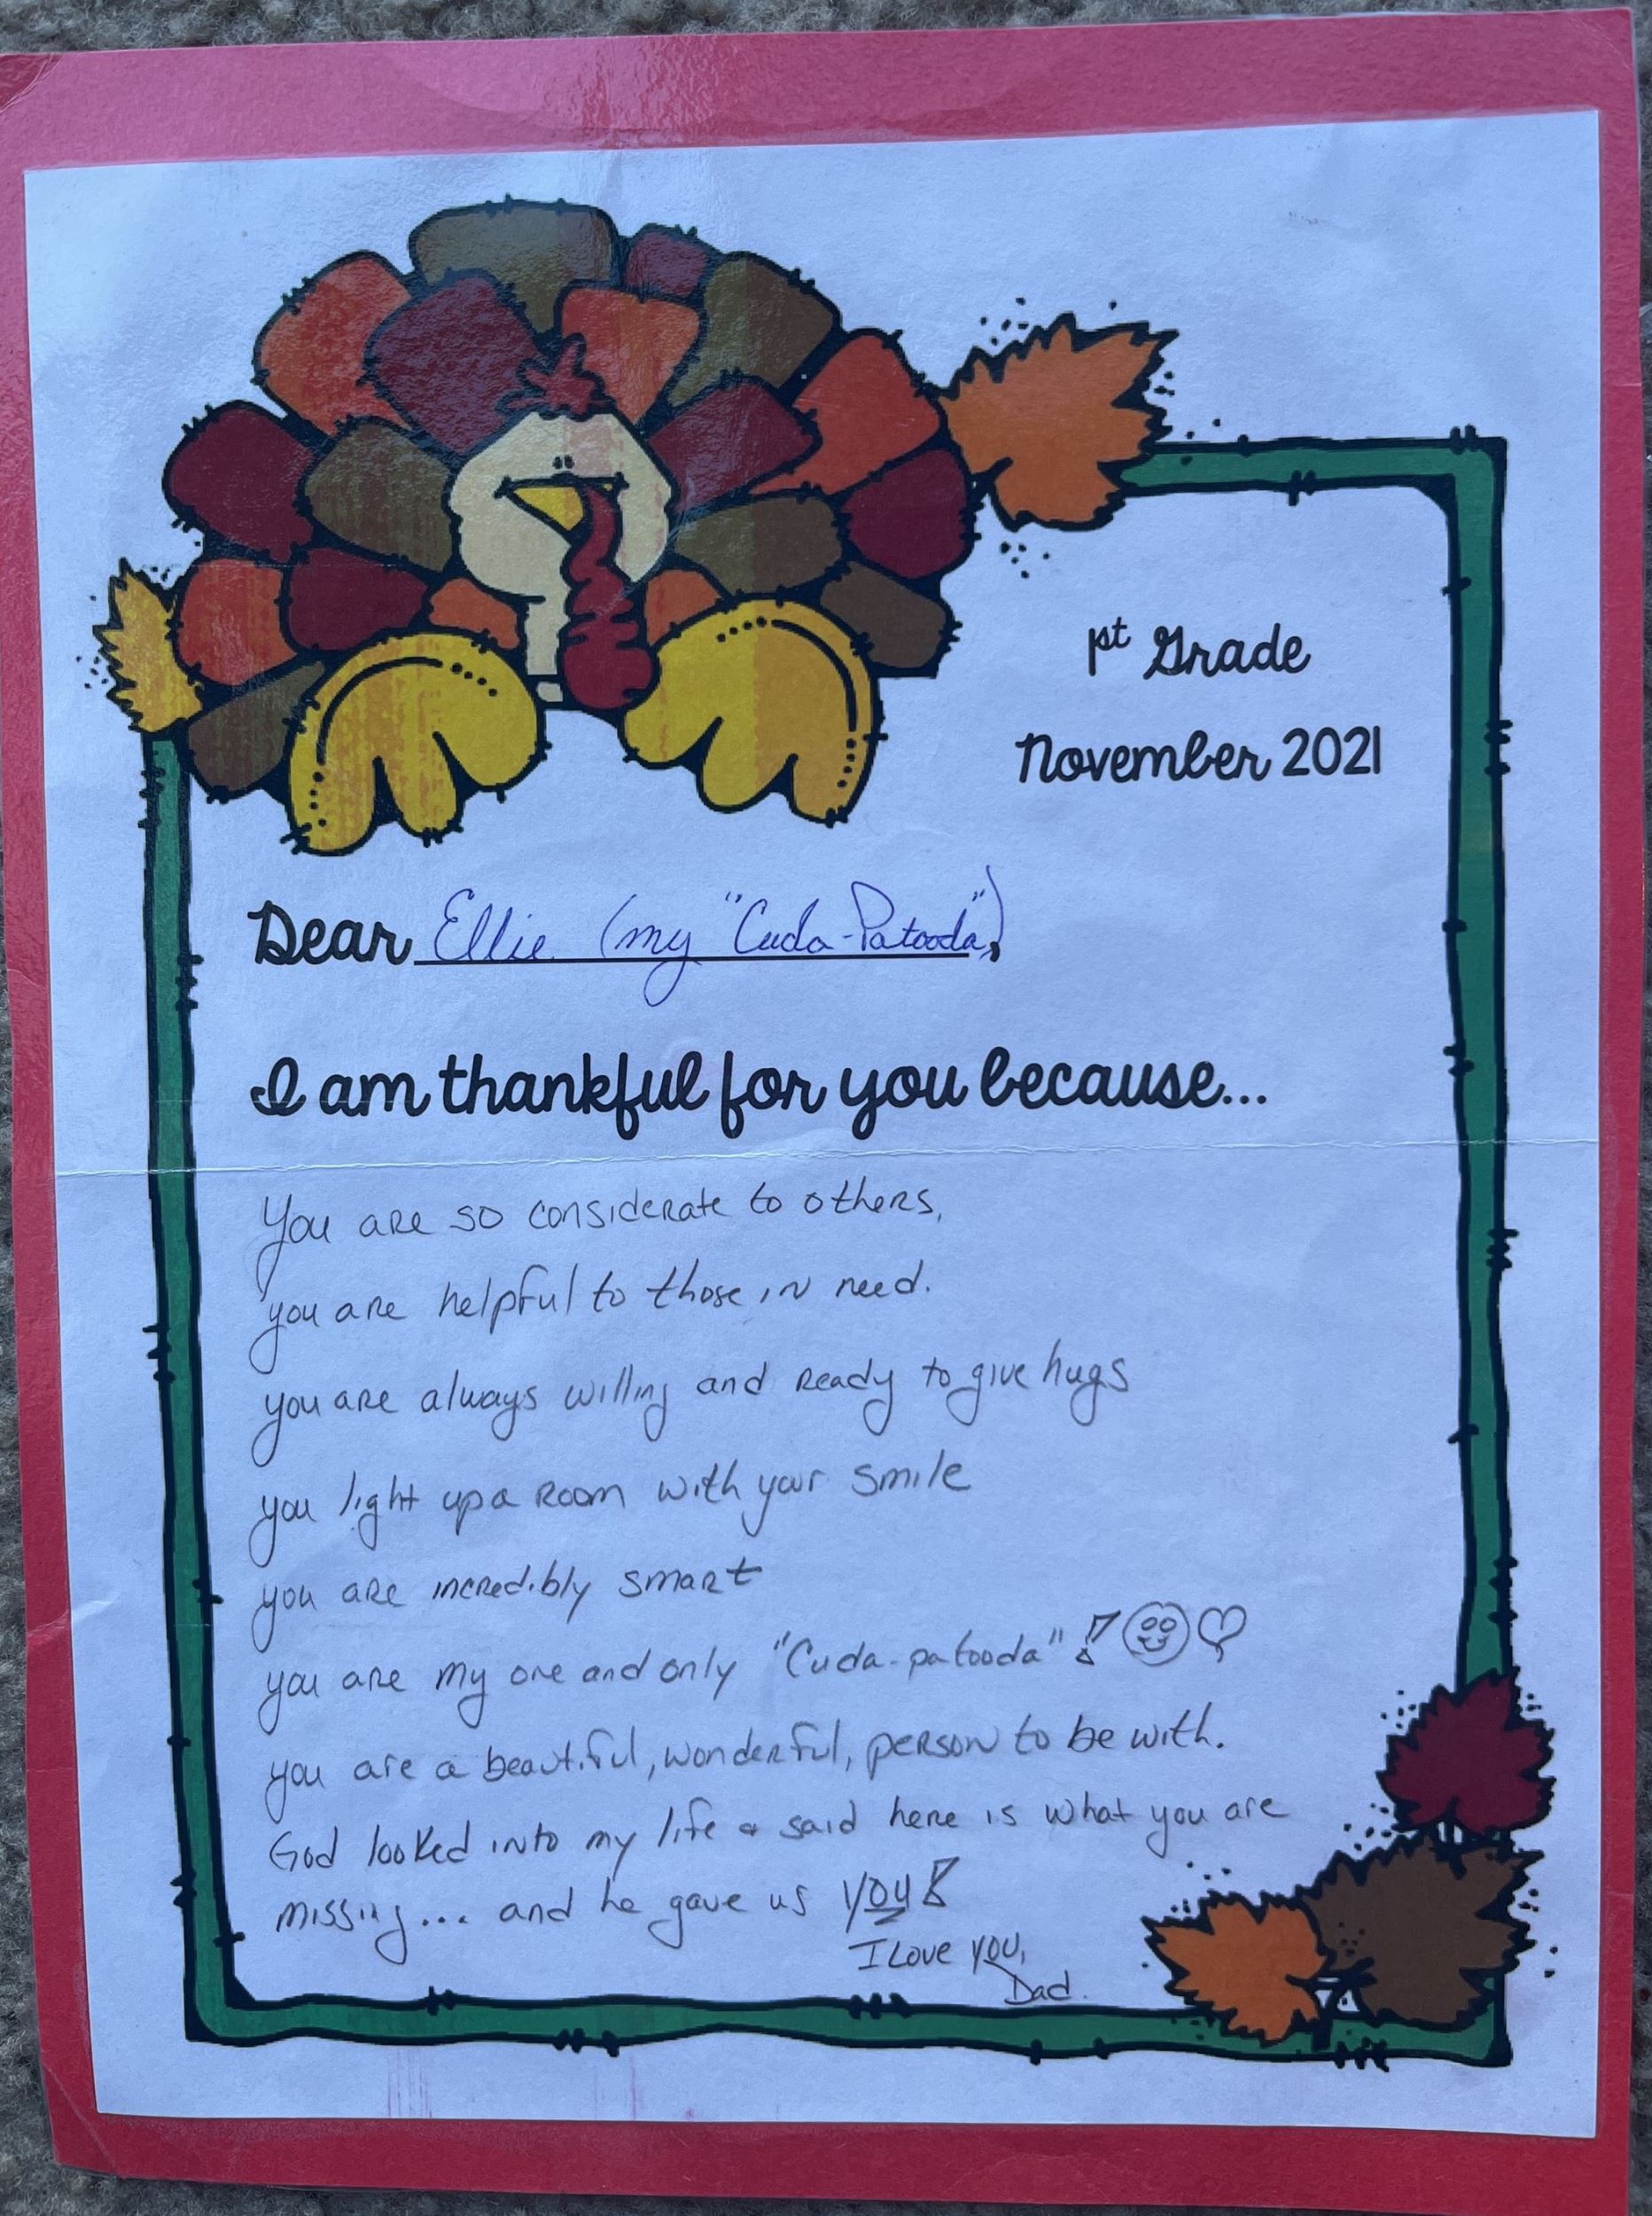 1st Grade
November 2021
Dear Ellie (my "Cuda-Patooda"),
I am thankful for you because...
You are so considerate to others,
you are helpful to those in need.
you are always willing and ready to give hugs
you light up a room with your smile
you are incredibly smart
you are my one and only "Cuda-patooda"!
you are a beautiful, wonderful, person to be with.
God looked into my life & said here is what you are
missing... and he gave us YOU!
I Love you,
Dad.